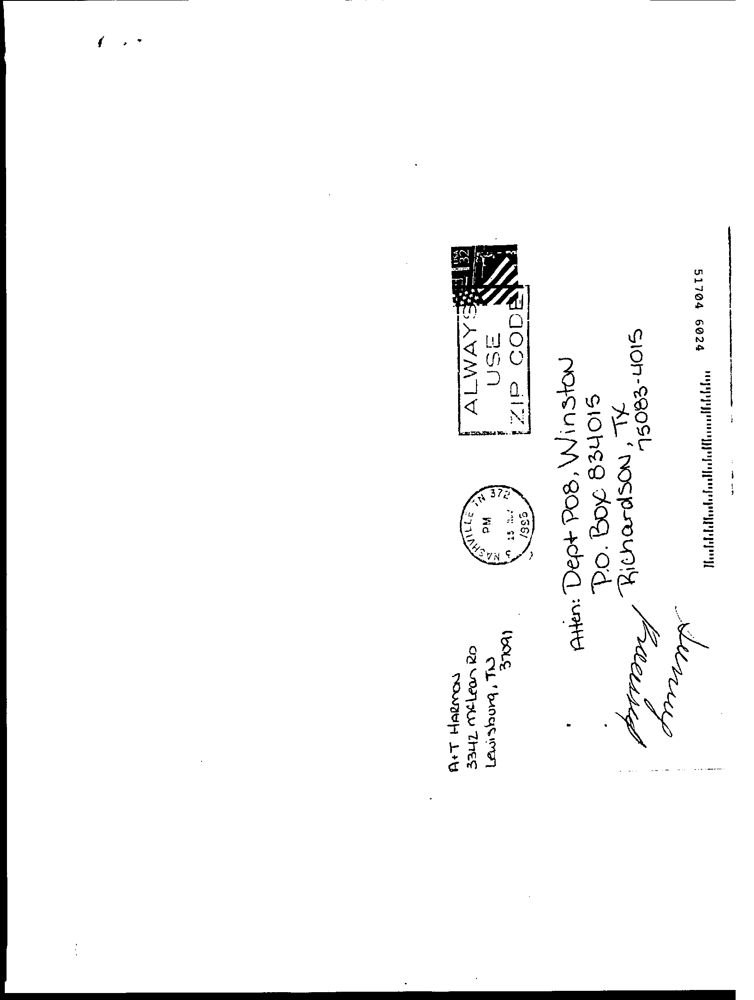 A+T HARMON
3342 McLean RD
Lewisburg, TN
37091
NASHVILLE TN 372
PM
1995
ALWAYS
USE
ZIP CODE
USA
32
Atten: Dept P08, Winston
P.O. Box 834015
Richardson, TX
75083-4015
51704 6024